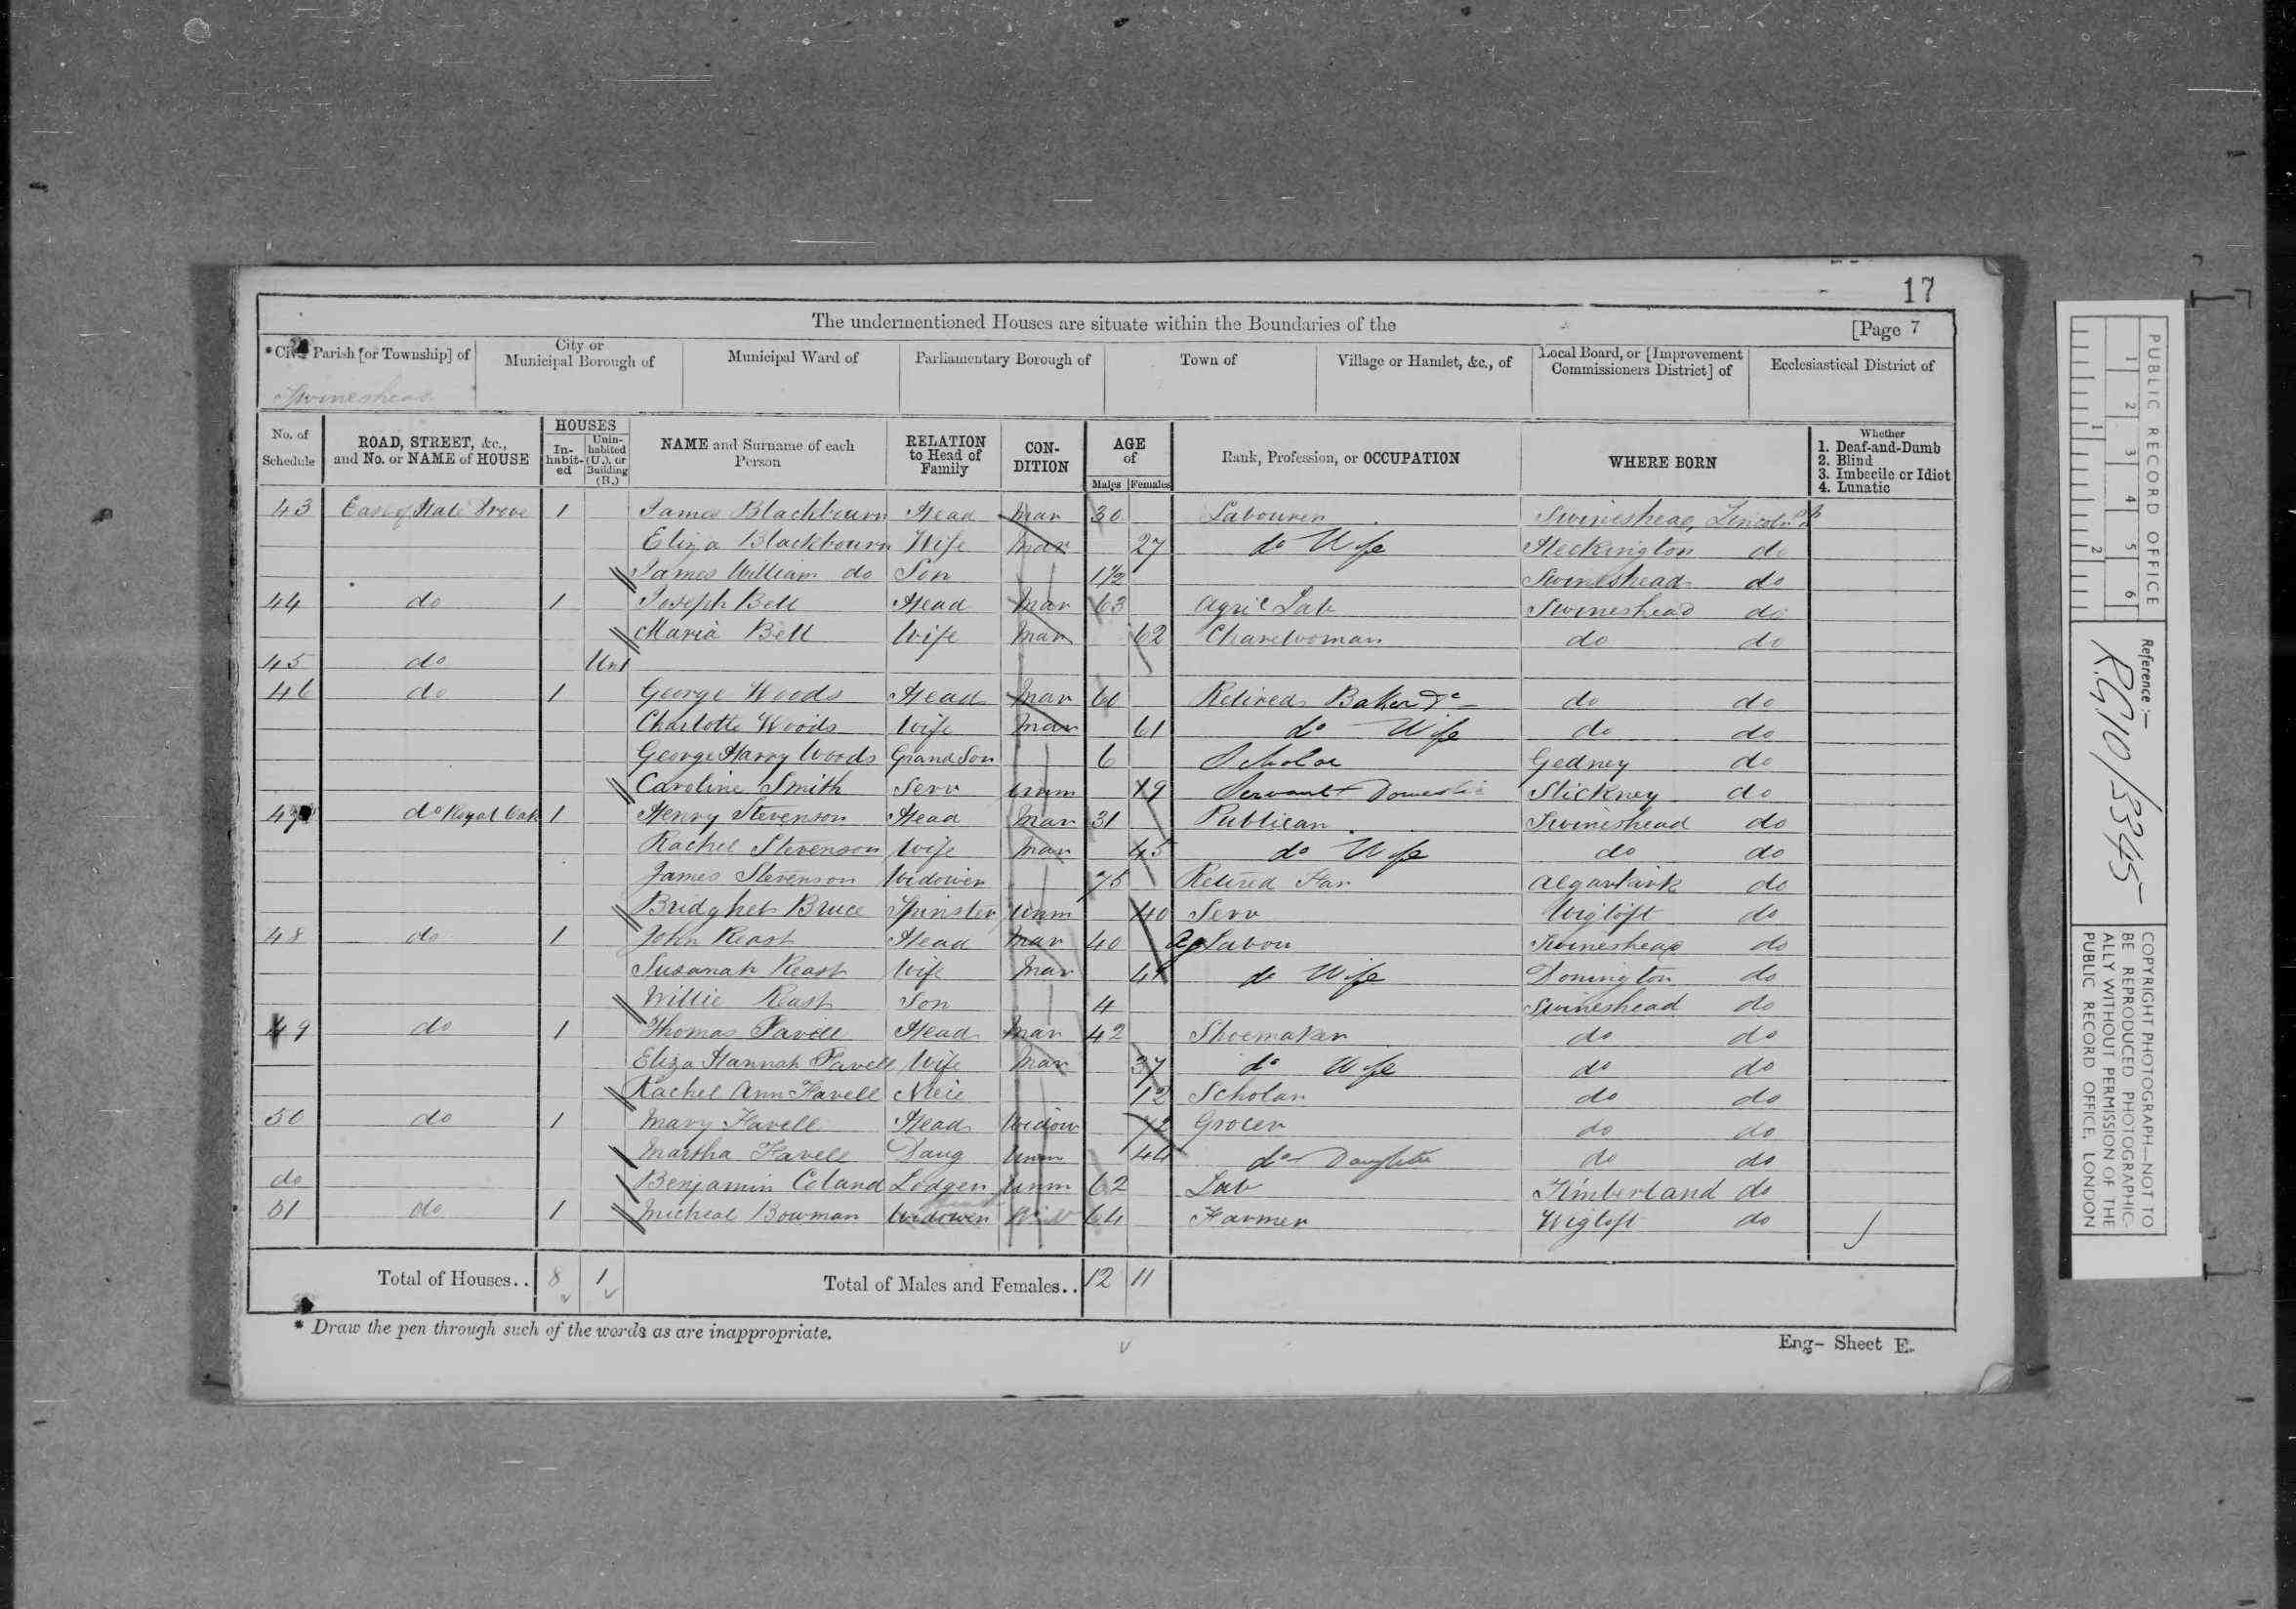 17
The undermentioned Houses are situate within the Boundaries of the [Page 7
*Civil Parish [or Township] of City or Municipal Borough of Municipal Ward of Parliamentary Borough of Town of Village or Hamlet, &c., of Local Board, or [Improvement Commissioners District] of Ecclesiastical District of
Swineshead
No. of Schedule ROAD, STREET, &c., and No. or NAME of HOUSE HOUSES Inhabited Uninhabited (U.), or Building (B.) NAME and Surname of each Person RELATION to Head of Family CONDITION AGE of Males Females Rank, Profession, or OCCUPATION WHERE BORN Whether 1. Deaf-and-Dumb 2. Blind 3. Imbecile or Idiot 4. Lunatic
43 East of 1 James Blackbourn Head Mar 30 Labourer Swineshead, Lincoln
Eliza Blackbourn Wife Mar 27 do Wife Heckington do
James William do Son 1/2 Swineshead do
44 do 1 Joseph Bell Head Mar 63 Agric Lab Swineshead do
Maria Bell Wife Mar 62 Charewoman do do
45 do Un 1
46 do 1 George Woods Head Mar 60 Retired Baker &c do do
Charlotte Woods Wife Mar 61 do Wife do do
George Harry Woods Grand Son 6 Scholar Gedney do
Caroline Smith Serv Unm 19 Servant Domestic Stickney do
47 do Royal Oak 1 Henry Stevenson Head Mar 31 Publican Swineshead do
Rachel Stevenson Wife Mar 45 do Wife do do
James Stevenson Widower 75 Retired Far Algarkirk do
Bridghet Bruce Spinster Unm 40 Serv Wigtoft do
48 do 1 John Reast Head Mar 40 Ag Labou Swineshead do
Susanah Reast Wife Mar do Wife Donington do
Willie Reast Son 4 Swineshead do
49 do 1 Thomas Favell Head Mar 42 Shoemaker do do
Eliza Hannah Favell Wife Mar 37 do Wife do do
Rachel Ann Favell Niece 12 Scholar do do
50 do 1 Mary Favell Head Widow 72 Grocer do do
Martha Favell Daug Unm 44 do Daughter do do
do Benjamin Coland Lodger Unm 62 Lab Timberland do
51 do 1 Micheal Bowman Widower Wid 64 Farmer Wigtoft do
Total of Houses.. 8 1 Total of Males and Females.. 12 11
* Draw the pen through such of the words as are inappropriate.
Eng- Sheet E.
PUBLIC RECORD OFFICE
1 2 3 4 5 6
1 2
Reference :-
RG10/3345
COPYRIGHT PHOTOGRAPH—NOT TO
BE REPRODUCED PHOTOGRAPHIC-
ALLY WITHOUT PERMISSION OF THE
PUBLIC RECORD OFFICE, LONDON